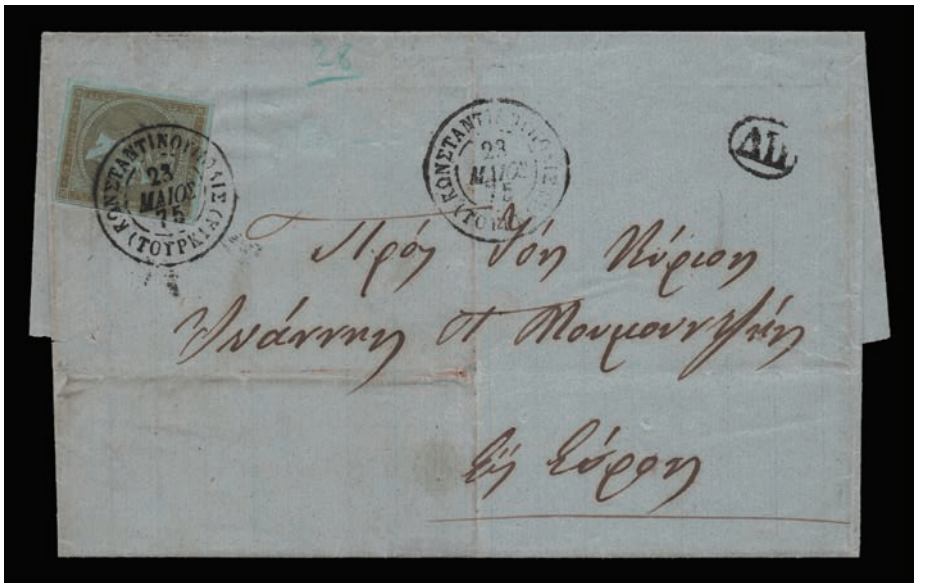 28
ΚΩΝΣΤΑΝΤΙΝΟΥΠΟΛΙΣ
23
ΜΑΙΟΣ
75
(ΤΟΥΡΚΙΑ)
ΚΩΝΣΤΑΝΤΙΝΟΥΠΟΛΙΣ
23
ΜΑΙΟΣ
75
(ΤΟΥΡΚΙΑ)
Πρός τόν Κύριον
Ἰωάννην Π
Εἰς Σύρον